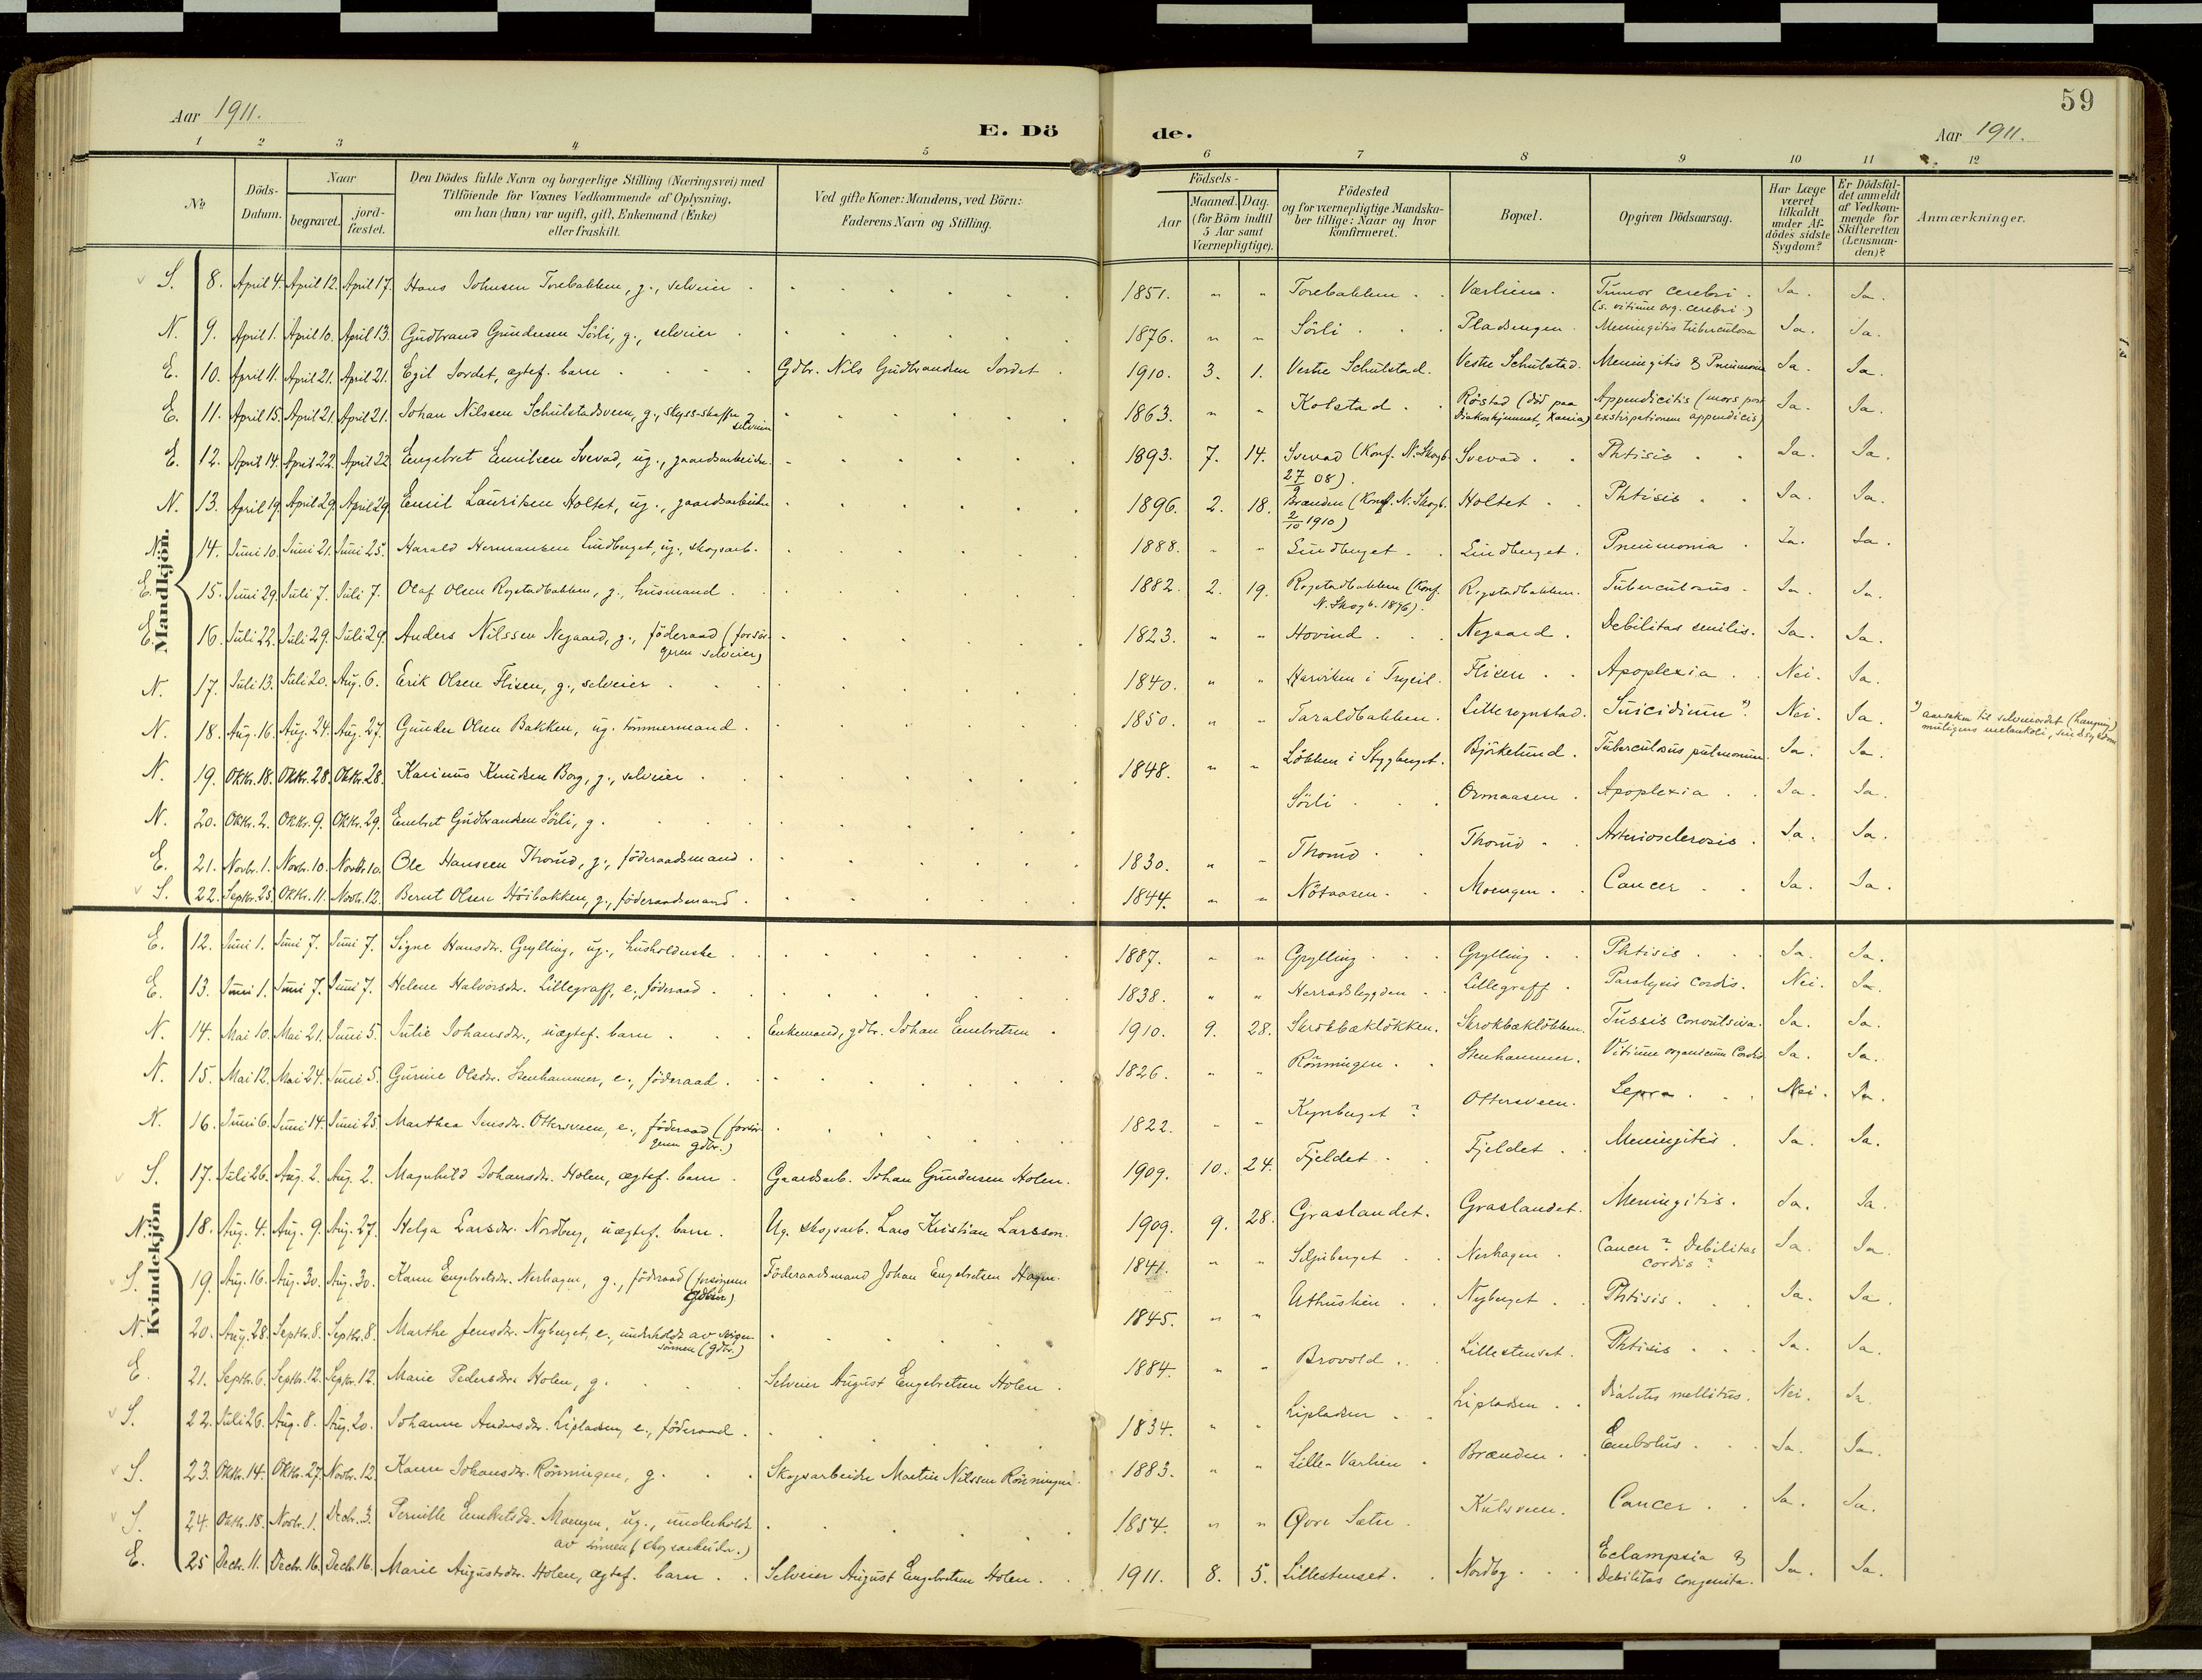 Aar 1911.
E. Dö
de.
59
Aar 1911.
1 2 3 4 5 6 7 8 9 10 11 12
No
Döds-
Datum.
Naar
begravet.
jord-
fæstet.
Den Dödes fulde Navn og borgerlige Stilling (Næringsvei) med
Tilföiende for Voxnes Vedkommende af Oplysning,
om han (hun) var ugift, gift, Enkemand (Enke)
eller fraskilt.
Ved gifte Koner: Mandens, ved Börn:
Faderens Navn og Stilling.
Födsels-
Aar
Maaned. Dag.
(for Börn indtil
5 Aar samt
Værnepligtige).
Födested
og for værnepligtige Mandska-
ber tillige: Naar og hvor
konfirmeret.
Bopæl.
Opgiven Dödsaarsag.
Har Læge
været
tilkaldt
under Af-
dödes sidste
Sygdom?
Er Dödsfal-
det anmeldt
af Vedkom-
mende for
Skifteretten
(Lensman-
den)?
Anmærkninger.
Mandkjön.
S. 8. April 4. April 12. April 17. Hans Johnsen Torebakken, g., selveier 1851. " " Torebakken. Værlien. Tumor cerebri. Ja. Ja.
(s. vitium org. cerebri.)
N. 9. April 1. April 10. April 13. Gudbrand Gundersen Sörli, g., selveier 1876. " " Sörli Pladsengen. Meningitis tuberculosa Ja. Ja.
E. 10. April 11. April 21. April 21. Egil Jordet, ægtef. barn Gdbr. Nils Gudbrandsen Jordet 1910. 3. 1. Vestre Schulstad. Vestre Schulstad. Meningitis & Pneumonia Ja. Ja.
E. 11. April 15. April 21. April 21. Johan Nilssen Schulstadsveen, g., skyss-skaffer 1863. " " Kolstad. Röstad (död paa Appendicitis (mors post Ja. Ja.
selveier Diakonhjemmet, Xania) exstirpationem appendicis)
E. 12. April 14. April 22. April 22 Engebret Emilsen Svevad, ug., gaardsarbeider. 1893. 7. 14. Svevad (Konf. N. Skogb. Svevad. Phtisis Ja. Ja.
27/9 08).
N. 13. April 19. April 29. April 29. Emil Lauritsen Holtet, ug., gaardsarbeider 1896. 2. 18. Brænden (Konf. N. Skogb. Holtet Phtisis Ja. Ja.
2/10 1910)
N. 14. Juni 10. Juni 21. Juni 25. Harald Hermansen Lindberget, ug., skogsarb. 1888. " " Lindberget. Lindberget. Pneumonia Ja. Ja.
E. 15. Juni 29. Juli 7. Juli 7. Olaf Olsen Rogstadbakken, g., husmand. 1882. 2. 19. Rogstadbakken (Konf. Rogstadbakken. Tuberculosis Ja. Ja.
N. Skogb. 1896).
E. 16. Juli 22. Juli 29. Juli 29. Anders Nilssen Negaard, g., föderaad (forsör- 1823. " " Hovind. Negaard. Debilitas senilis. Ja. Ja.
geren selveier)
N. 17. Juli 13. Juli 20. Aug. 6. Erik Olsen Flisen, g., selveier 1840. " " i Trysil. Flisen Apoplexia. Nei. Ja.
N. 18. Aug. 16. Aug. 24. Aug. 27. Gunder Olsen Bakken, ug. tömmermand. 1850. " " Taraldbakken. Lillerognstad. Suicidium *). Nei. Ja. *) aarsaken til selvmordet (hængning)
muligens melankoli,
N. 19. Oktbr. 18. Oktbr. 28. Oktbr. 28. Karinus Knudsen Berg, g., selveier 1848. " " Lökken i Stygberget. Björkelund. Tuberculosis pulmonum. Ja. Ja.
N. 20. Oktbr. 2. Oktbr. 9. Oktbr. 29. Embret Gudbrandsen Sörli, g. Sörli Ormaasen. Apoplexia Ja. Ja.
E. 21. Novbr. 1. Novbr. 10. Novbr. 10. Ole Hanssen Thorud, g., föderaadsmand. 1830. " " Thorud Thorud Arteriosclerosis. Ja. Ja.
S. 22. Septbr. 25. Oktbr. 11. Novbr. 12. Bernt Olsen Höibakken, g., föderaadsmand. 1844. " " Nötaasen. Moengen. Cancer Ja. Ja.
Kvindekjön
E. 12. Juni 1. Juni 7. Juni 7. Signe Hansdtr. Grylling, ug., husholderske 1887. " " Grylling Grylling Phtisis Ja. Ja.
E. 13. Juni 1. Juni 7. Juni 7. Helene Halvorsdtr. Lillegraff, e., föderaad. 1838. " " Herradsbygden Lillegraff. Paralysis cordis. Nei. Ja.
N. 14. Mai 10. Mai 21. Juni 5. Julie Johansdtr., uægtef. barn Enkemand, gdbr. Johan Embretsen 1910. 9. 28. Skrokbækløkken. Skrokbækløkken. Tussis convulsiva. Ja. Ja.
N. 15. Mai 12. Mai 24. Juni 5. Gurine Olsdtr. Stenhammer, e., föderaad. 1826. " " Rönningen. Stenhammer. Vitium organicum Cordis Ja. Ja.
N. 16. Juni 6. Juni 14. Juni 25. Marthea Jensdtr. Ottersveen, e., föderaad (forsör- 1822. " " Kynberget? Ottersveen. Lepra. Nei. Ja.
geren gdbr.)
S. 17. Juli 26. Aug. 2. Aug. 2. Magnhild Johansdtr. Holen, ægtef. barn. Gaardsarb. Johan Gundersen Holen. 1909. 10. 24. Fjeldet Fjeldet Meningitis. Ja. Ja.
N. 18. Aug. 4. Aug. 9. Aug. 27. Helga Larsdtr. Nordberg, uægtef. barn. Ug. skogsarb. Lars Kristian Larsson. 1909. 9. 28. Graslandet. Graslandet. Meningitis. Ja. Ja.
S. 19. Aug. 16. Aug. 30. Aug. 30. Karen Engebretsdtr. Nerhagen, g., föderaad (forsörgeren Föderaadsmand Johan Engebretsen Hagen. 1841. " " Nerhagen. Cancer? Debilitas Ja. Ja.
cordis?
N. 20. Aug. 28. Septbr. 8. Septbr. 8. Marthe Jensdtr. Nyberget, e., underholdt av sviger- 1845. " " Nyberget. Phtisis. Ja. Ja.
sönnen (gdbr.)
E. 21. Septbr. 6. Septbr. 12. Septbr. 12. Marie Pedersdtr. Holen, g. Selveier August Engebretsen Holen. 1884. " " Brovold. Lillestenset. Phtisis Ja. Ja.
S. 22. Juli 26. Aug. 8. Aug. 20. Johanne Andersdtr. Lipladsen, e., föderaad. 1834. " " Lipladsen Lipladsen Diabetes mellitus. Nei. Ja.
S. 23. Oktbr. 14. Oktbr. 27. Novbr. 12. Karen Johansdtr. Rönningen, g. Skogsarbeider Martin Nilssen Rönningen. 1883. " " Lille-Værlien Brænden. Embolus. Ja. Ja.
S. 24. Oktbr. 18. Novbr. 1. Decbr. 3. Pernille Embretsdtr. Moengen, ug., underholdt 1854. " " Øvre Sæter. Kulsveen. Cancer Ja. Ja.
av sönnen (skogsarbeider.)
E. 25 Decbr. 11. Decbr. 16. Decbr. 16. Marie Augustsdtr. Holen, ægtef. barn Selveier August Engebretsen Holen. 1911. 8. 5. Lillestenset. Nordby Eclampsia & Ja. Ja.
Debilitas congenita.